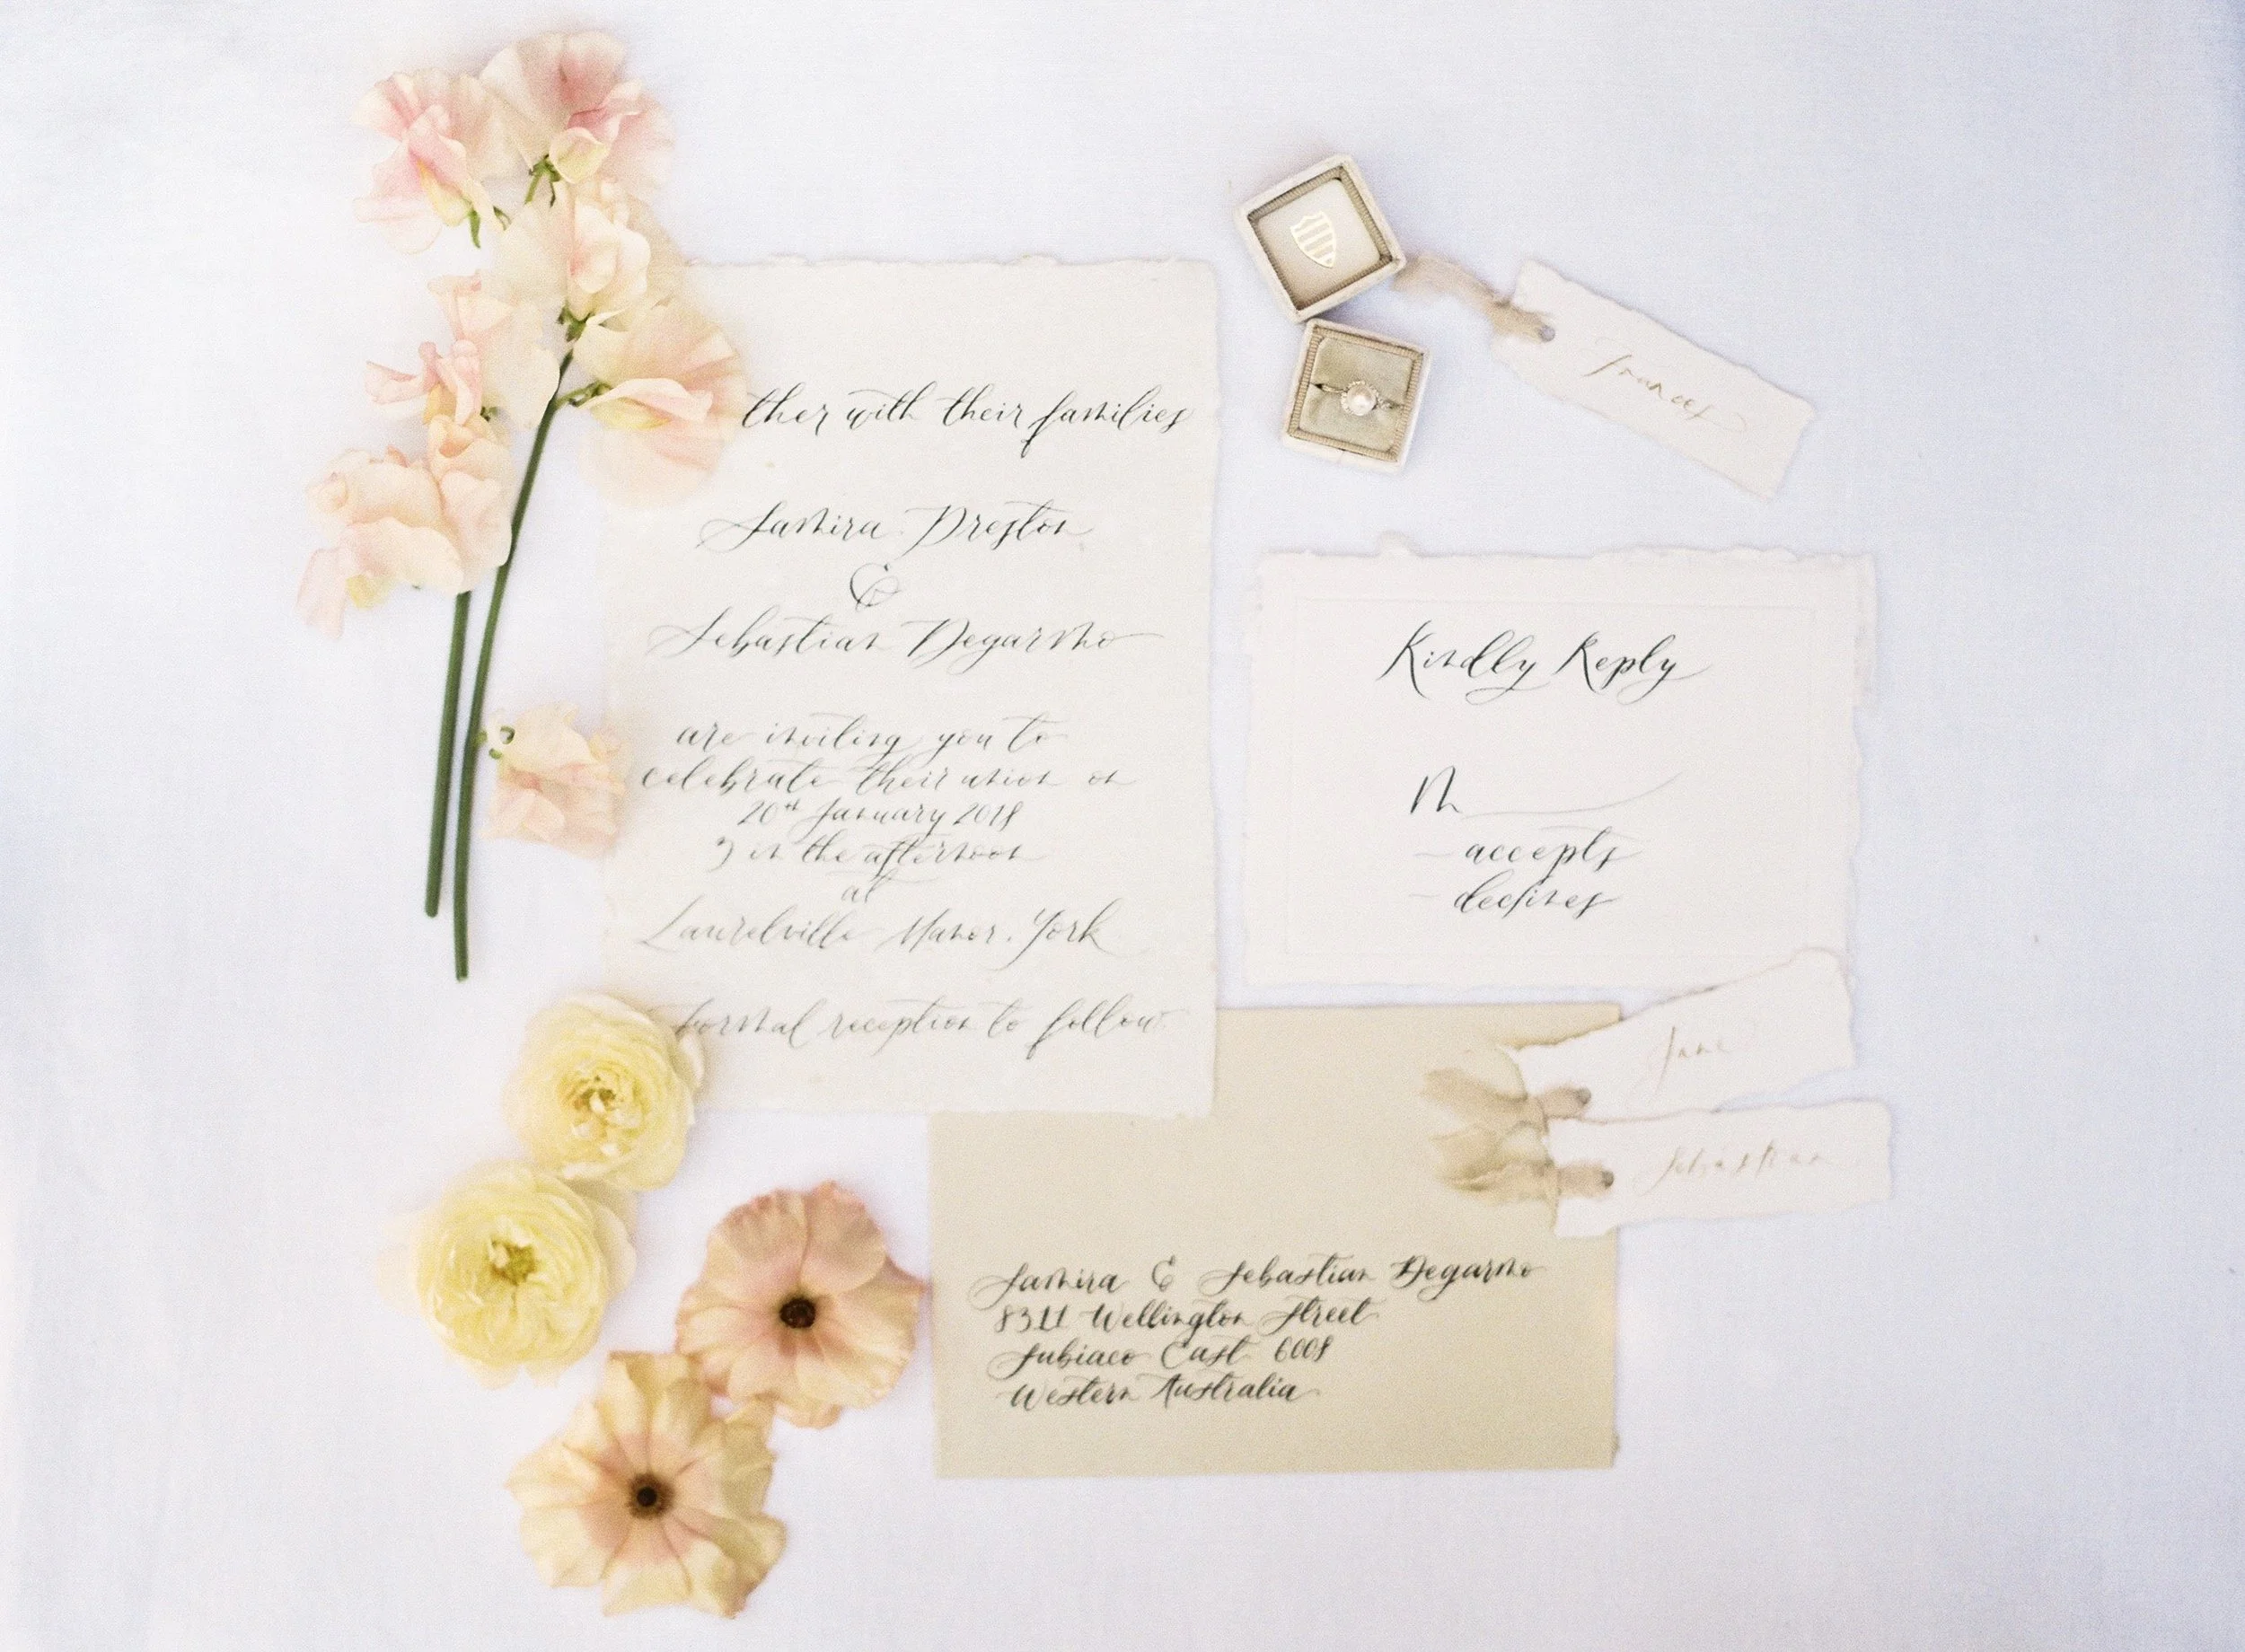 ther with their families
Samira Preston
&
Sebastian Degarmo
are inviting you to
celebrate their union on
20th January 2018
3 in the afternoon
at
Laurelville Manor. York
formal reception to follow
Frances
Kindly Reply
M
accepts
declines
Jane
Sebastian
Samira & Sebastian Degarmo
8311 Wellington Street
Subiaco East 6008
Western Australia